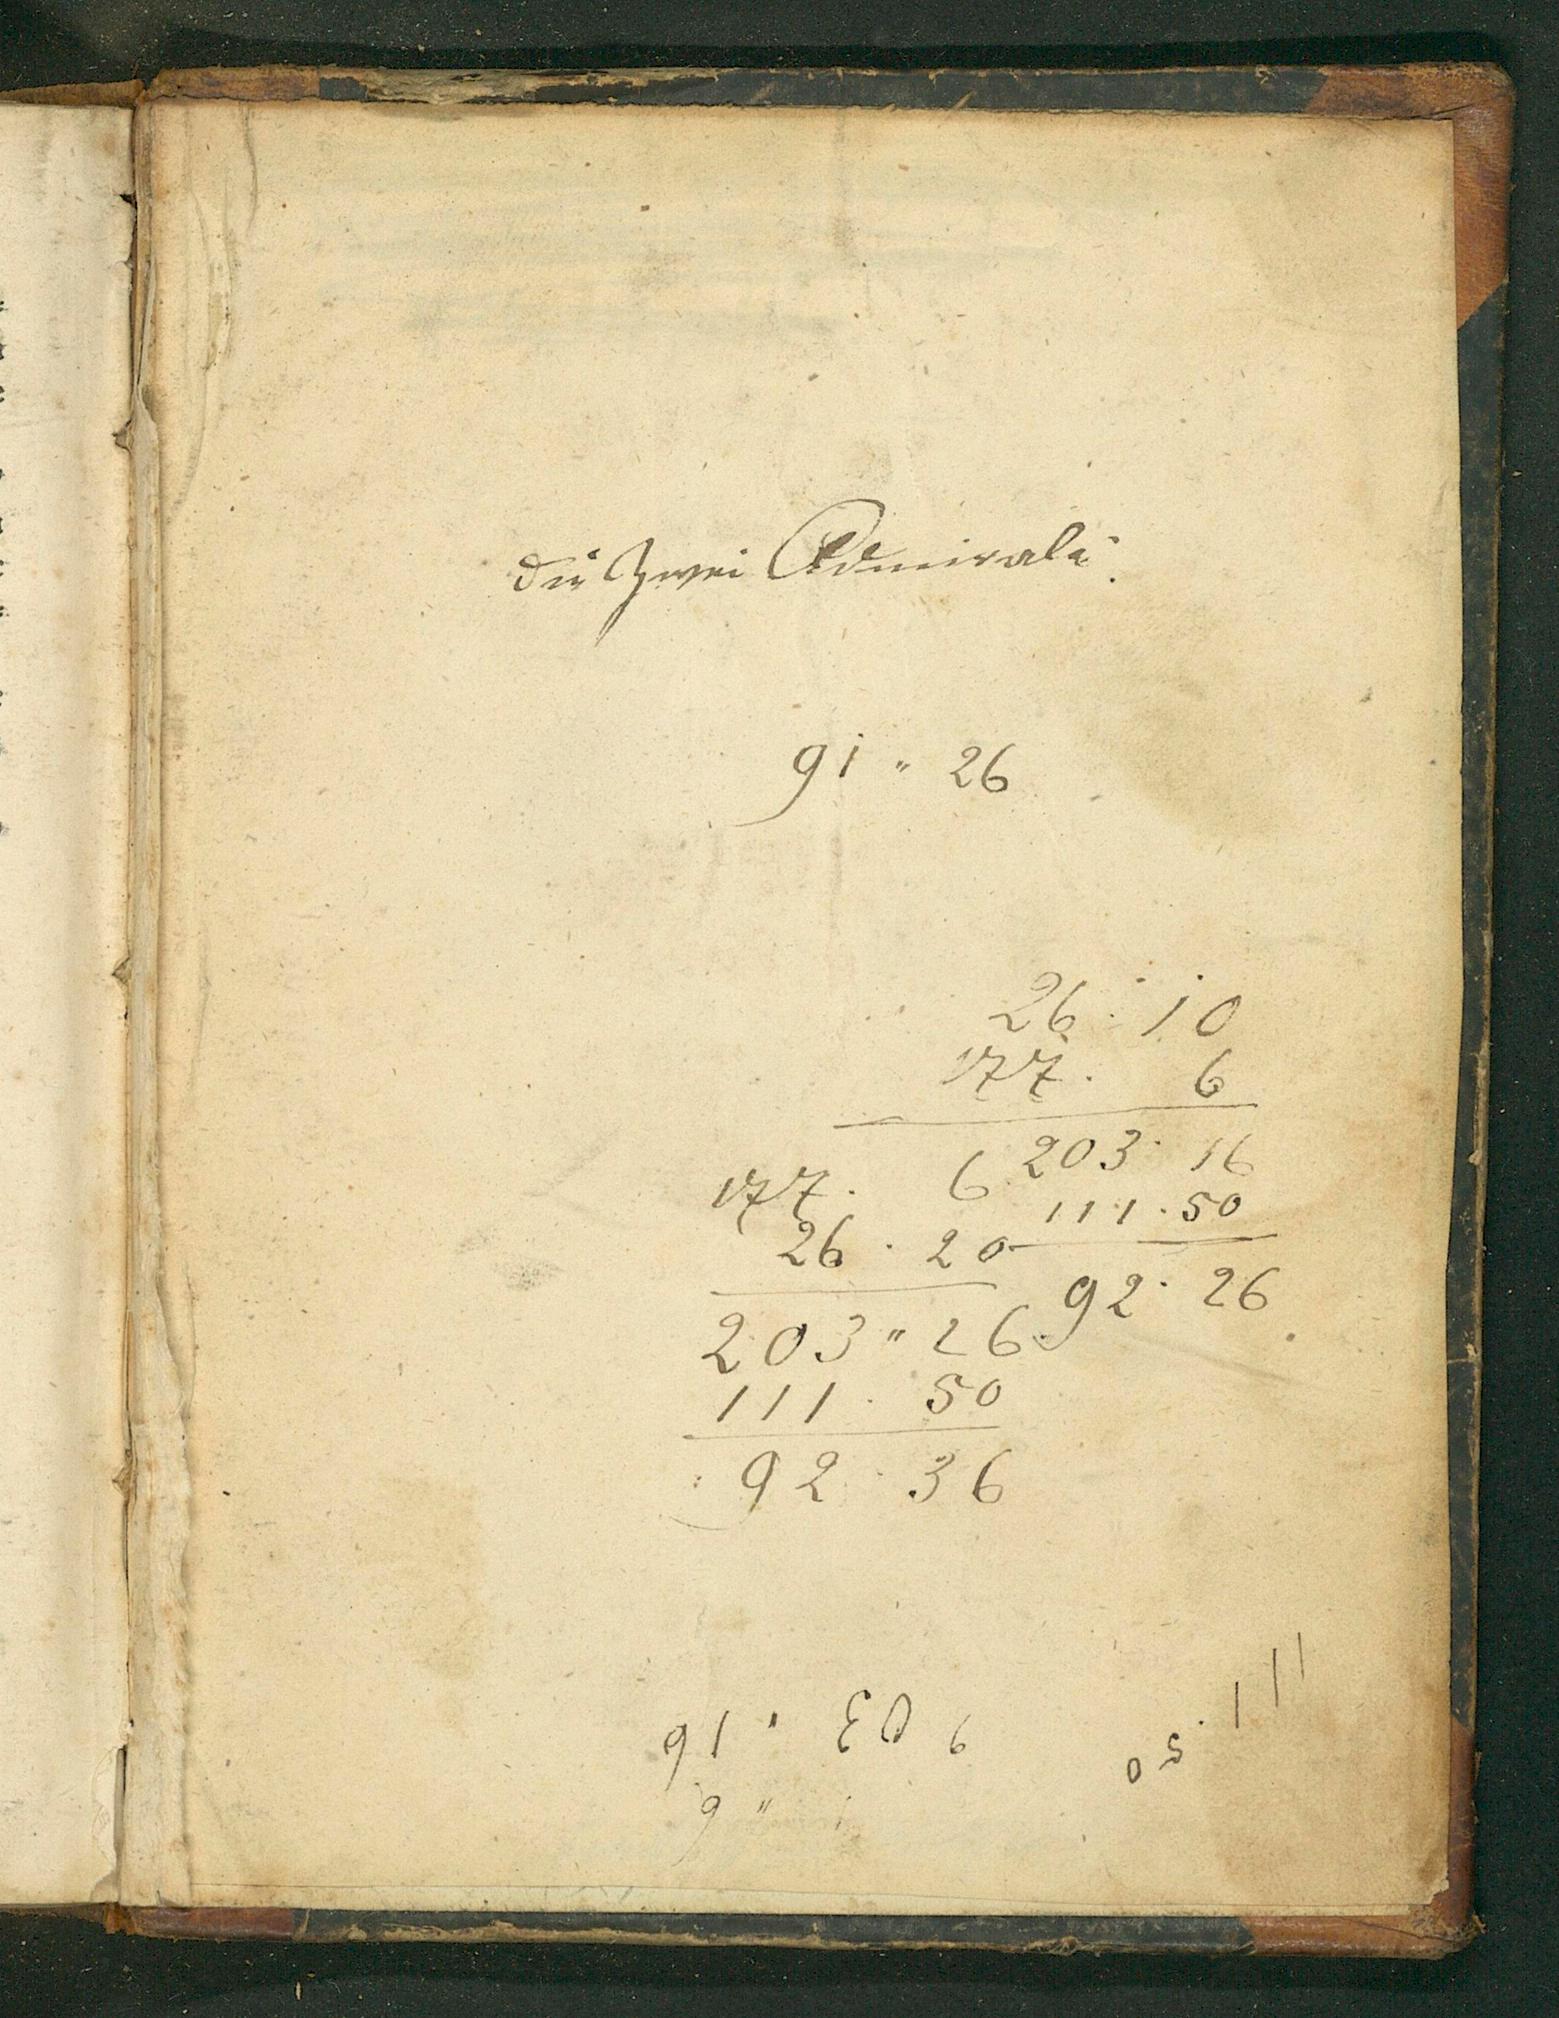 Die Zwei Admirale.
91 " 26
26 . 10
177 . 6
203 . 16
111 . 50
92 . 26
177 . 6
26 . 20
203 " 26
111 . 50
92 . 36
111 . 50
91 "
9 "